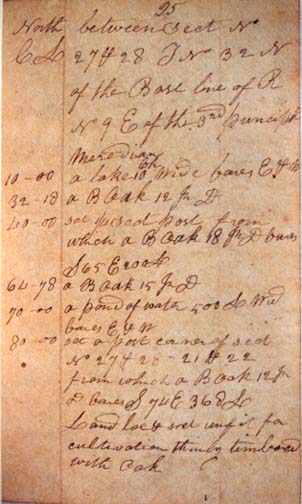 95
North between sect No
C L 27 & 28 T No 32 N
of the Base line of R
No 9 E of the 3rd principl
Meredian
10-00 a lake 10 Ch Wide bares E & W
32-18 a B Oak 12 In D
40-00 set qr sect post from
which a B Oak 18 In D bares
S 65 E 200 L
64-78 a B Oak 15 In D
70-00 a pond of water 500 L Wid
bares E & W
80-00 set a post corner of sect
No 27 & 28 - 21 & 22
from which a B Oak 12 In
D bares S 74 E 368 L
Land low & wet unfit for
cultivation thinly timbered
with Oak